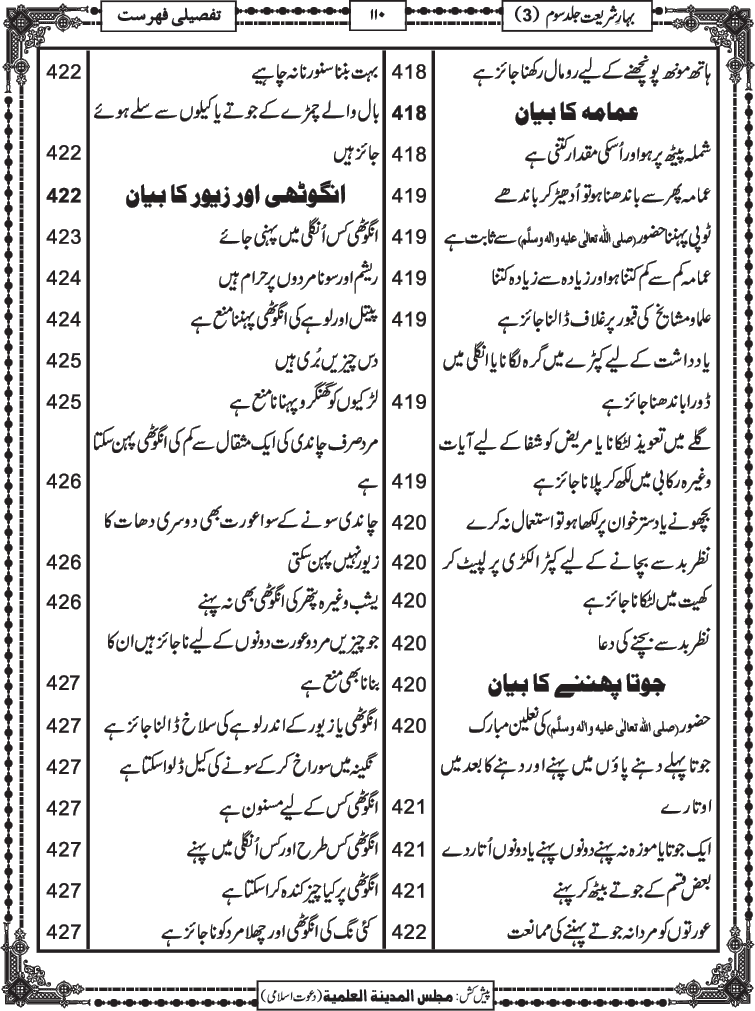 بہارِ شریعت جلد سوم (3)
۱۱۰
تفصیلی فہرست
ہاتھ مونھ پونچھنے کے لیے رومال رکھنا جائز ہے 418
عمامہ کا بیان 418
شملہ پیٹھ پر ہو اور اُسکی مقدار کتنی ہے 418
عمامہ پھر سے باندھنا ہو تو اُدھیڑ کر باندھے 419
ٹوپی پہننا حضور (صلی اللہ تعالٰی علیہ والہ وسلَّم) سے ثابت ہے 419
عمامہ کم سے کم کتنا ہو اور زیادہ سے زیادہ کتنا 419
علما و مشایخ کی قبور پر غلاف ڈالنا جائز ہے 419
یادداشت کے لیے کپڑے میں گرہ لگانا یا انگلی میں
ڈورا باندھنا جائز ہے 419
گلے میں تعویذ لٹکانا یا مریض کو شفا کے لیے آیات
وغیرہ رکابی میں لکھ کر پلانا جائز ہے 419
بچھونے یا دسترخوان پر لکھا ہو تو استعمال نہ کرے 420
نظر بد سے بچانے کے لیے کپڑا لکڑی پر لپیٹ کر 420
کھیت میں لٹکانا جائز ہے 420
نظر بد سے بچنے کی دعا 420
جوتا پھننے کا بیان 420
حضور (صلی اللہ تعالٰی علیہ والہ وسلَّم) کی نعلین مبارک 420
جوتا پہلے دہنے پاؤں میں پہنے اور دہنے کا بعد میں
اوتارے 421
ایک جوتا یا موزہ نہ پہنے دونوں پہنے یا دونوں اُتار دے 421
بعض قسم کے جوتے بیٹھ کر پہنے 421
عورتوں کو مردانہ جوتے پہننے کی ممانعت 422
بہت بننا سنورنا نہ چاہیے 422
بال والے چمڑے کے جوتے یا کیلوں سے سلے ہوئے
جائز ہیں 422
انگوٹھی اور زیور کا بیان 422
انگوٹھی کس اُنگلی میں پہنی جائے 423
ریشم اور سونا مردوں پر حرام ہیں 424
پیتل اور لوہے کی انگوٹھی پہننا منع ہے 424
دس چیزیں بُری ہیں 425
لڑکیوں کو گھنگرو پہنانا منع ہے 425
مرد صرف چاندی کی ایک مثقال سے کم کی انگوٹھی پہن سکتا
ہے 426
چاندی سونے کے سوا عورت بھی دوسری دھات کا
زیور نہیں پہن سکتی 426
یشب وغیرہ پتھر کی انگوٹھی بھی نہ پہنے 426
جو چیزیں مرد و عورت دونوں کے لیے ناجائز ہیں ان کا
بنانا بھی منع ہے 427
انگوٹھی یا زیور کے اندر لوہے کی سلاخ ڈالنا جائز ہے 427
نگینہ میں سوراخ کرکے سونے کی کیل ڈلوا سکتا ہے 427
انگوٹھی کس کے لیے مسنون ہے 427
انگوٹھی کس طرح اور کس اُنگلی میں پہنے 427
انگوٹھی پر کیا چیز کندہ کرا سکتا ہے 427
کئی نگ کی انگوٹھی اور چھلا مرد کو ناجائز ہے 427
پیش کش: مجلس المدینۃ العلمیۃ (دعوت اسلامی)